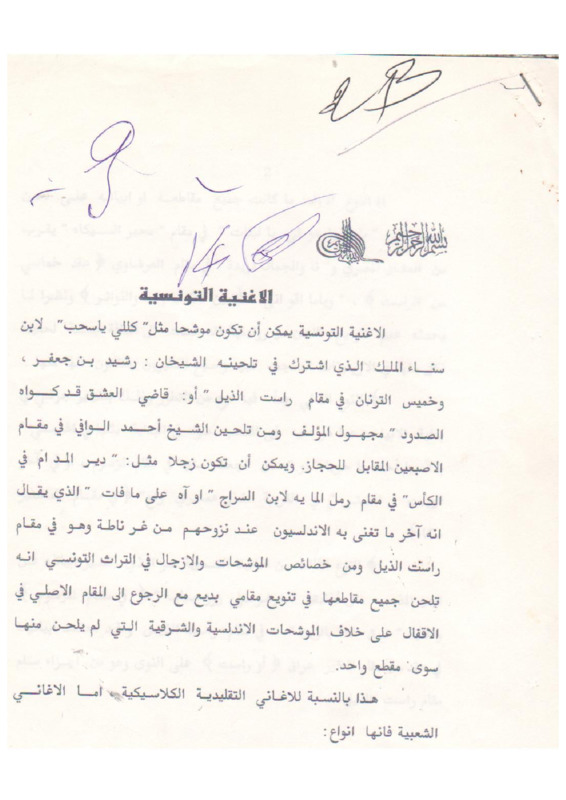 بسم الله الرحمن الرحيم
الاغنية التونسية
الاغنية التونسية يمكن أن تكون موشحا مثل" كللي ياسحب" لابن
سناء الملك الذي اشترك في تلحينه الشيخان : رشيد بن جعفر ،
وخميس الترنان في مقام راست الذيل " أو: قاضي العشق قد كواه
الصدود " مجهول المؤلف ومن تلحين الشيخ أحمد الوافي في مقام
الاصبعين المقابل للحجاز. ويمكن أن تكون زجلا مثل: " دير المدام في
الكأس" في مقام رمل المايه لابن السراج " او آه على ما فات " الذي يقال
انه آخر ما تغنى به الاندلسيون عند نزوحهم من غرناطة وهو في مقام
راست الذيل ومن خصائص الموشحات والازجال في التراث التونسي انه
تلحن جميع مقاطعها في تنويع مقامي بديع مع الرجوع الى المقام الاصلي في
الاقفال على خلاف الموشحات الاندلسية والشرقية التي لم يلحن منها
سوى مقطع واحد.
هذا بالنسبة للاغاني التقليدية الكلاسيكية . اما الاغاني
الشعبية فانها انواع: